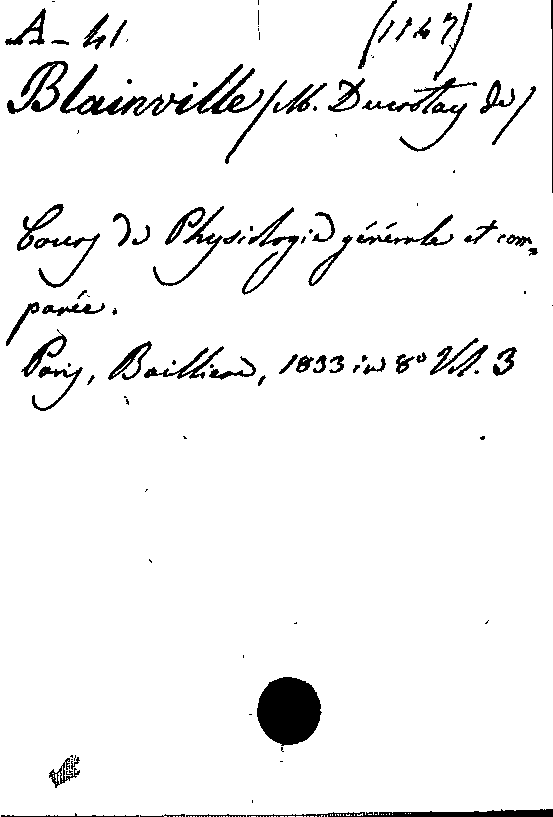 A - 41 (1147)
Blainville /M. Ducrotay de/
Cours de Physiologie générale et com-
parée.
Paris, Bailliere, 1833 in 8º Vol. 3